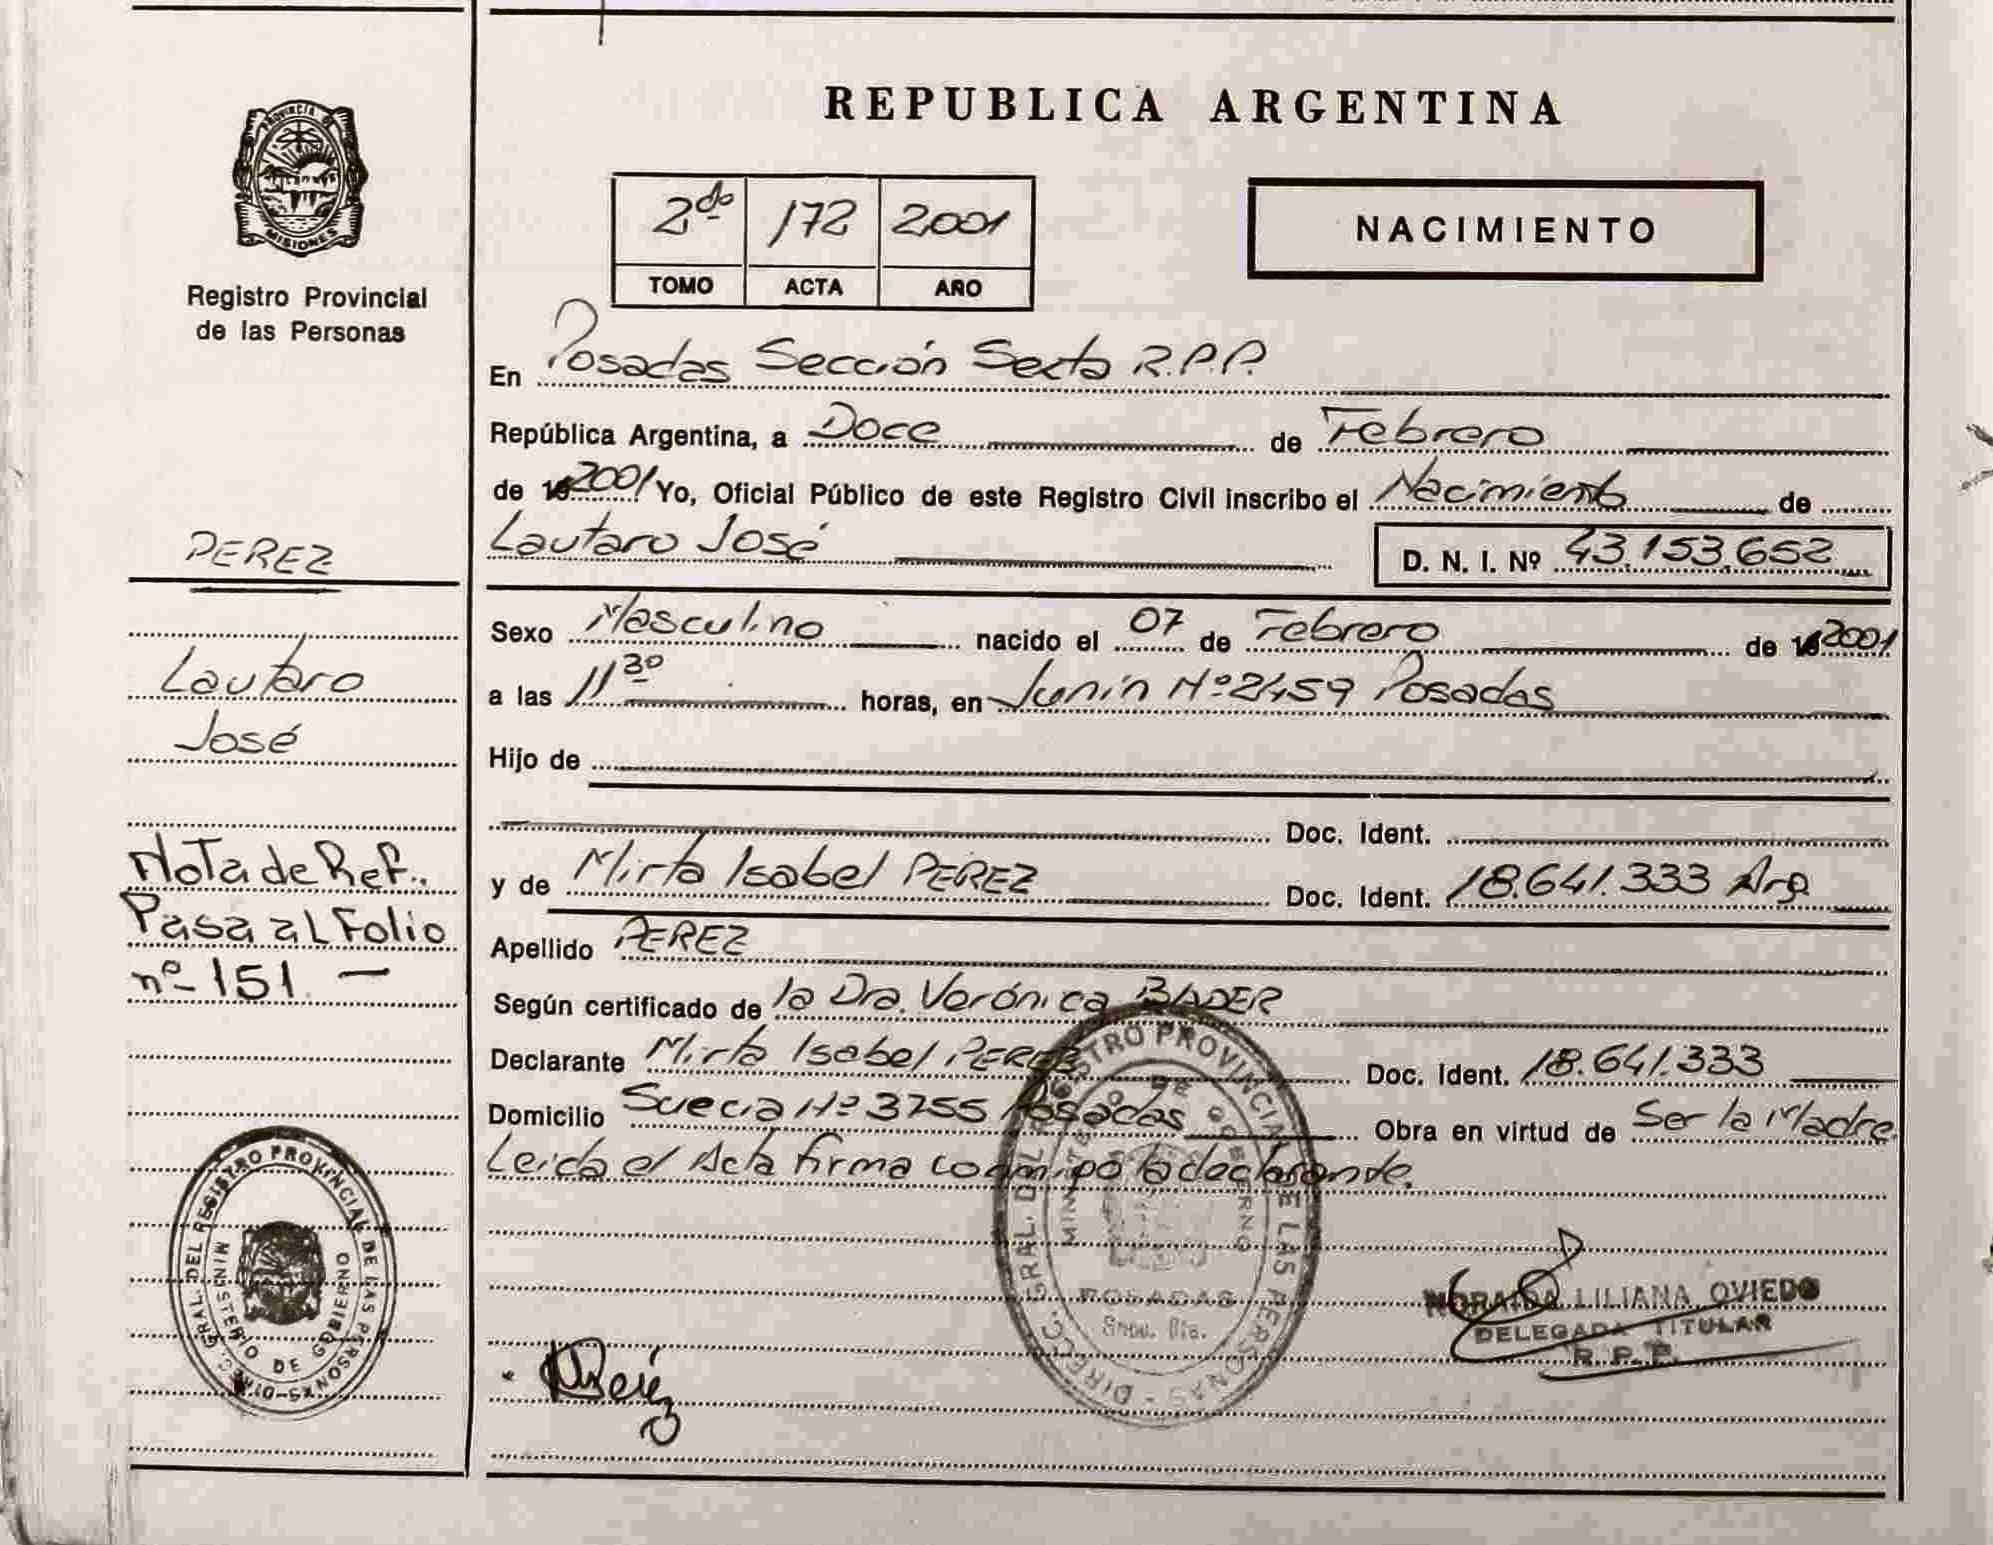 REPUBLICA ARGENTINA
PROVINCIA DE
MISIONES
Registro Provincial
de las Personas
2do 172 2001
TOMO ACTA AÑO
NACIMIENTO
En Posadas Sección Sexta R.P.P.
República Argentina, a Doce de Febrero
de 192001 Yo, Oficial Público de este Registro Civil inscribo el Nacimiento de
Lautaro José D. N. I. Nº 43.153.652
Sexo Masculino nacido el 07 de Febrero de 192001
a las 11 30 horas, en Junín Nº 2459 Posadas
Hijo de
Doc. Ident.
y de Mirta Isabel PEREZ Doc. Ident. 18.641.333 Arg.
Apellido PEREZ
Según certificado de la Dra. Verónica BADER
Declarante Mirta Isabel PEREZ Doc. Ident. 18.641.333
Domicilio Suecia Nº 3255 Posadas Obra en virtud de Ser la Madre.
Leida el Acta firma conmigo la declarante.
PEREZ
Lautaro
José
Nota de Ref.
Pasa al Folio
nº 151 —
DIREC. GRAL. DEL REGISTRO PROVINCIAL DE LAS PERSONAS
MINISTERIO DE GOBIERNO
DIREC. GRAL. DEL REGISTRO PROVINCIAL DE LAS PERSONAS
MINISTERIO DE GOBIERNO
POSADAS
Perez
LILIANA OVIEDO
DELEGADA TITULAR
R. P. P.